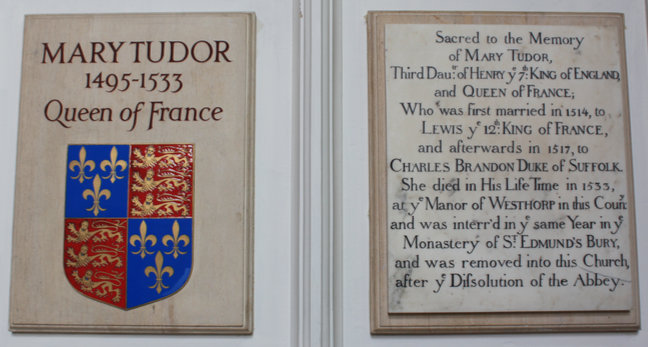 MARY TUDOR
1495-1533
Queen of France
Sacred to the Memory
of MARY TUDOR,
Third Dau.r of HENRY ye 7th: KING of ENGLAND,
and QUEEN of FRANCE;
Who was first married in 1514, to
LEWIS ye 12th: KING of FRANCE,
and afterwards in 1517, to
CHARLES BRANDON DUKE of SUFFOLK.
She died in His Life Time in 1533,
at ye Manor of WESTHORP in this County
and was interr'd in ye same Year in ye
Monastery of St. EDMUND'S BURY,
and was removed into this Church,
after ye Dissolution of the Abbey.